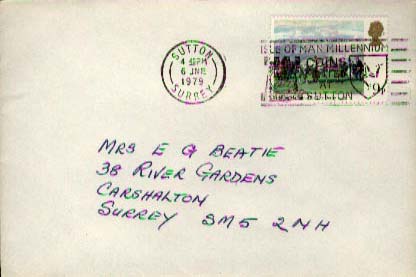 SUTTON
4 - PM
6 JNE
1979
SURREY
ISLE OF MAN MILLENNIUM
COINS
AT
SUTTON
9p
MRS E G BEATIE
38 RIVER GARDENS
CARSHALTON
SURREY SM5 2NH